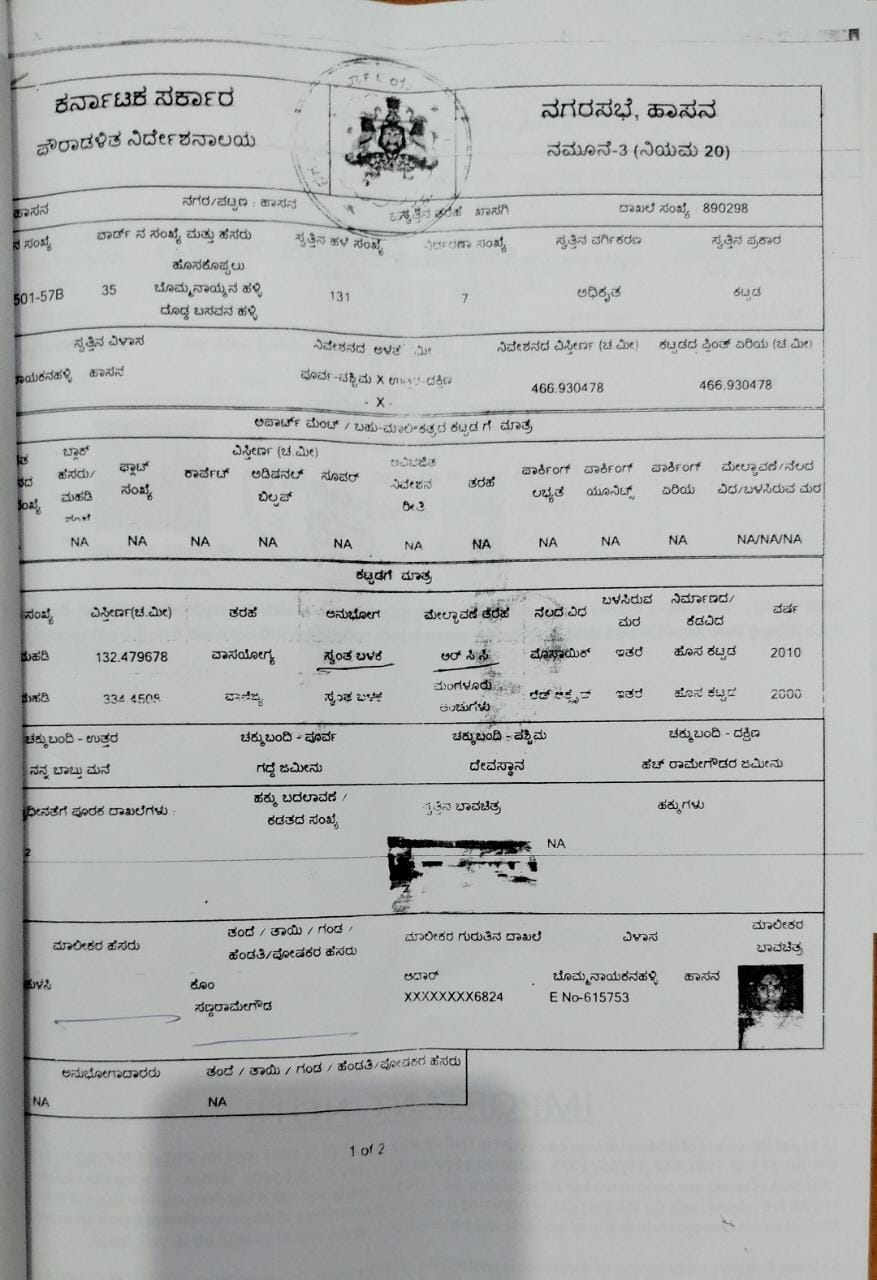 ಕರ್ನಾಟಕ ಸರ್ಕಾರ
ಪೌರಾಡಳಿತ ನಿರ್ದೇಶನಾಲಯ
ನಗರಸಭೆ, ಹಾಸನ
ನಮೂನೆ-3 (ನಿಯಮ 20)
ಹಾಸನ ನಗರ/ಪಟ್ಟಣ : ಹಾಸನ ಸ್ವತ್ತಿನ ತರಹೆ ಖಾಸಗಿ ದಾಖಲೆ ಸಂಖ್ಯೆ 890298
ಸಂಖ್ಯೆ ವಾರ್ಡ್ ನ ಸಂಖ್ಯೆ ಮತ್ತು ಹೆಸರು ಸ್ವತ್ತಿನ ಹಳೆ ಸಂಖ್ಯೆ ಸಂಖ್ಯೆ ಸ್ವತ್ತಿನ ವರ್ಗಿಕರಣ ಸ್ವತ್ತಿನ ಪ್ರಕಾರ
501-57B 35 ಹೊಸಕೊಪ್ಪಲು 131 7 ಅಧಿಕೃತ ಕಟ್ಟಡ
ಬೊಮ್ಮನಾಯ್ಕನ ಹಳ್ಳಿ
ದೊಡ್ಡ ಬಸವನ ಹಳ್ಳಿ
ಸ್ವತ್ತಿನ ವಿಳಾಸ ನಿವೇಶನದ ಅಳತೆ ಮೀ ನಿವೇಶನದ ವಿಸ್ತೀರ್ಣ (ಚ.ಮೀ) ಕಟ್ಟಡದ ಪ್ಲಿಂತ್ ಏರಿಯ (ಚ.ಮೀ)
ಾಯಕನಹಳ್ಳಿ ಹಾಸನ ಪೂರ್ವ-ಪಶ್ಚಿಮ X ಉತ್ತರ-ದಕ್ಷಿಣ 466.930478 466.930478
- X -
ಅಪಾರ್ಟ್ ಮೆಂಟ್ / ಬಹು-ಮಾಲೀಕತ್ವದ ಕಟ್ಟಡ ಗೆ ಮಾತ್ರ
ವಿಸ್ತೀರ್ಣ (ಚ.ಮೀ)
ಬ್ಲಾಕ್ ಹೆಸರು/ ಮಹಡಿ ಫ್ಲಾಟ್ ಸಂಖ್ಯೆ ಕಾರ್ಪೆಟ್ ಅಡಿಷನಲ್ ಬಿಲ್ಟಪ್ ಸೂಪರ್ ಅವಿಭಜಿತ ನಿವೇಶನ ರೀತಿ ತರಹೆ ಪಾರ್ಕಿಂಗ್ ಲಭ್ಯತೆ ಪಾರ್ಕಿಂಗ್ ಯೂನಿಟ್ಸ್ ಪಾರ್ಕಿಂಗ್ ಏರಿಯ ಮೇಲ್ಛಾವಣೆ/ನೆಲದ ವಿಧ/ಬಳಸಿರುವ ಮರ
NA NA NA NA NA NA NA NA NA NA NA/NA/NA
ಕಟ್ಟಡಗೆ ಮಾತ್ರ
ಸಂಖ್ಯೆ ವಿಸ್ತೀರ್ಣ(ಚ.ಮೀ) ತರಹೆ ಅನುಭೋಗ ಮೇಲ್ಛಾವಣೆ ತರಹೆ ನೆಲದ ವಿಧ ಬಳಸಿರುವ ಮರ ನಿರ್ಮಾಣದ/ ಕೆಡವಿದ ವರ್ಷ
ಮಹಡಿ 132.479678 ವಾಸಯೋಗ್ಯ ಸ್ವಂತ ಬಳಕೆ ಆರ್ ಸಿ ಸಿ ಮೊಸಾಯಿಕ್ ಇತರೆ ಹೊಸ ಕಟ್ಟಡ 2010
ಮಹಡಿ 334.4508 ವಾಣಿಜ್ಯ ಸ್ವಂತ ಬಳಕೆ ಮಂಗಳೂರು ಅಂಚುಗಳು ರೆಡ್ ಆಕ್ಸೈಡ್ ಇತರೆ ಹೊಸ ಕಟ್ಟಡ 2000
ಚಕ್ಕುಬಂದಿ - ಉತ್ತರ ಚಕ್ಕುಬಂದಿ - ಪೂರ್ವ ಚಕ್ಕುಬಂದಿ - ಪಶ್ಚಿಮ ಚಕ್ಕುಬಂದಿ - ದಕ್ಷಿಣ
ನನ್ನ ಬಾಬ್ತು ಮನೆ ಗದ್ದೆ ಜಮೀನು ದೇವಸ್ಥಾನ ಹೆಚ್ ರಾಮೇಗೌಡರ ಜಮೀನು
ಧೀನತೆಗೆ ಪೂರಕ ದಾಖಲೆಗಳು : ಹಕ್ಕು ಬದಲಾವಣೆ / ಕಡತದ ಸಂಖ್ಯೆ ಸ್ವತ್ತಿನ ಭಾವಚಿತ್ರ ಹಕ್ಕುಗಳು
2 NA
ಮಾಲೀಕರ ಹೆಸರು ತಂದೆ / ತಾಯಿ / ಗಂಡ / ಹೆಂಡತಿ/ಪೋಷಕರ ಹೆಸರು ಮಾಲೀಕರ ಗುರುತಿನ ದಾಖಲೆ ವಿಳಾಸ ಮಾಲೀಕರ ಭಾವಚಿತ್ರ
ತುಳಸಿ ಕೊಂ ಆದಾರ್ ಬೊಮ್ಮನಾಯಕನಹಳ್ಳಿ ಹಾಸನ
ಸಣ್ಣರಾಮೇಗೌಡ XXXXXXXX6824 E No-615753
ಅನುಭೋಗದಾರರು ತಂದೆ / ತಾಯಿ / ಗಂಡ / ಹೆಂಡತಿ/ಪೋಷಕರ ಹೆಸರು
NA NA
1 of 2